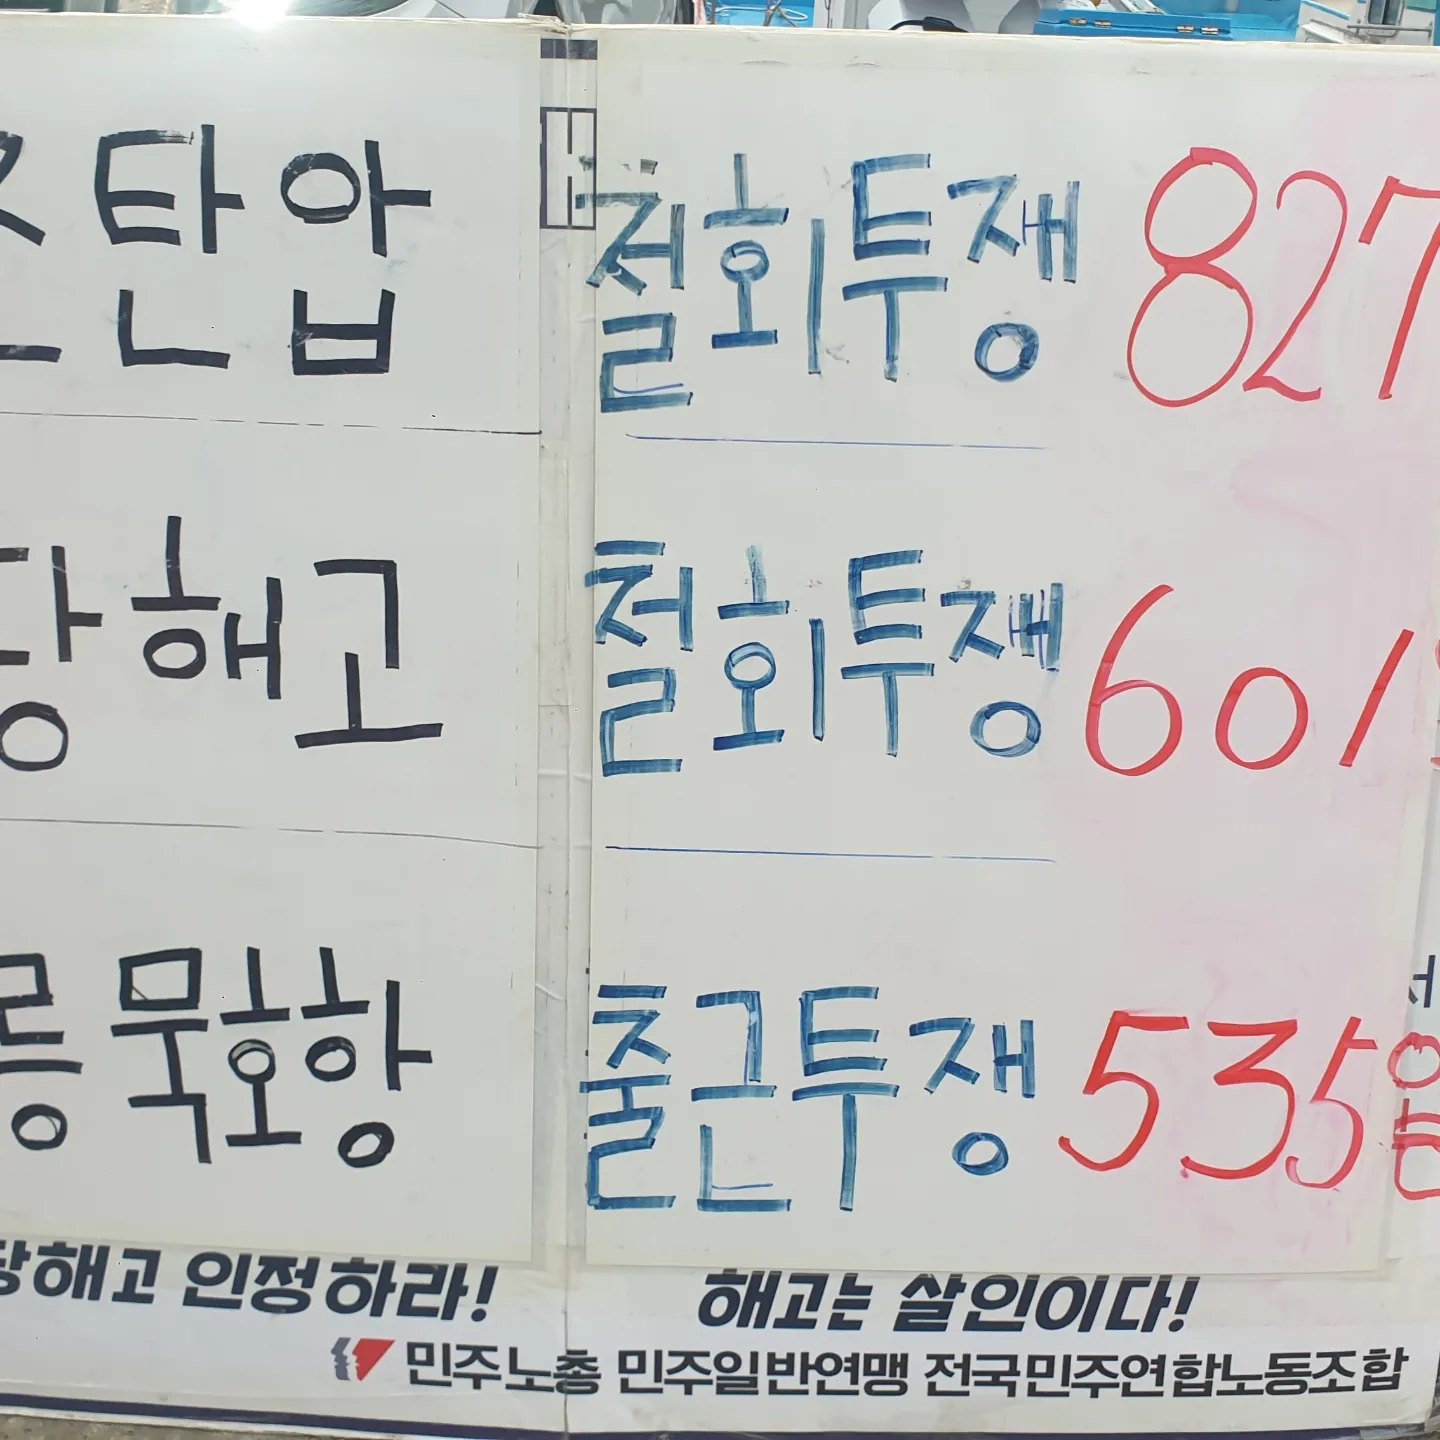 탄압 철회투쟁 827
해고 철회투쟁 601
묵호항 출근투쟁 535일
당해고 인정하라! 해고는 살인이다!
민주노총 민주일반연맹 전국민주연합노동조합